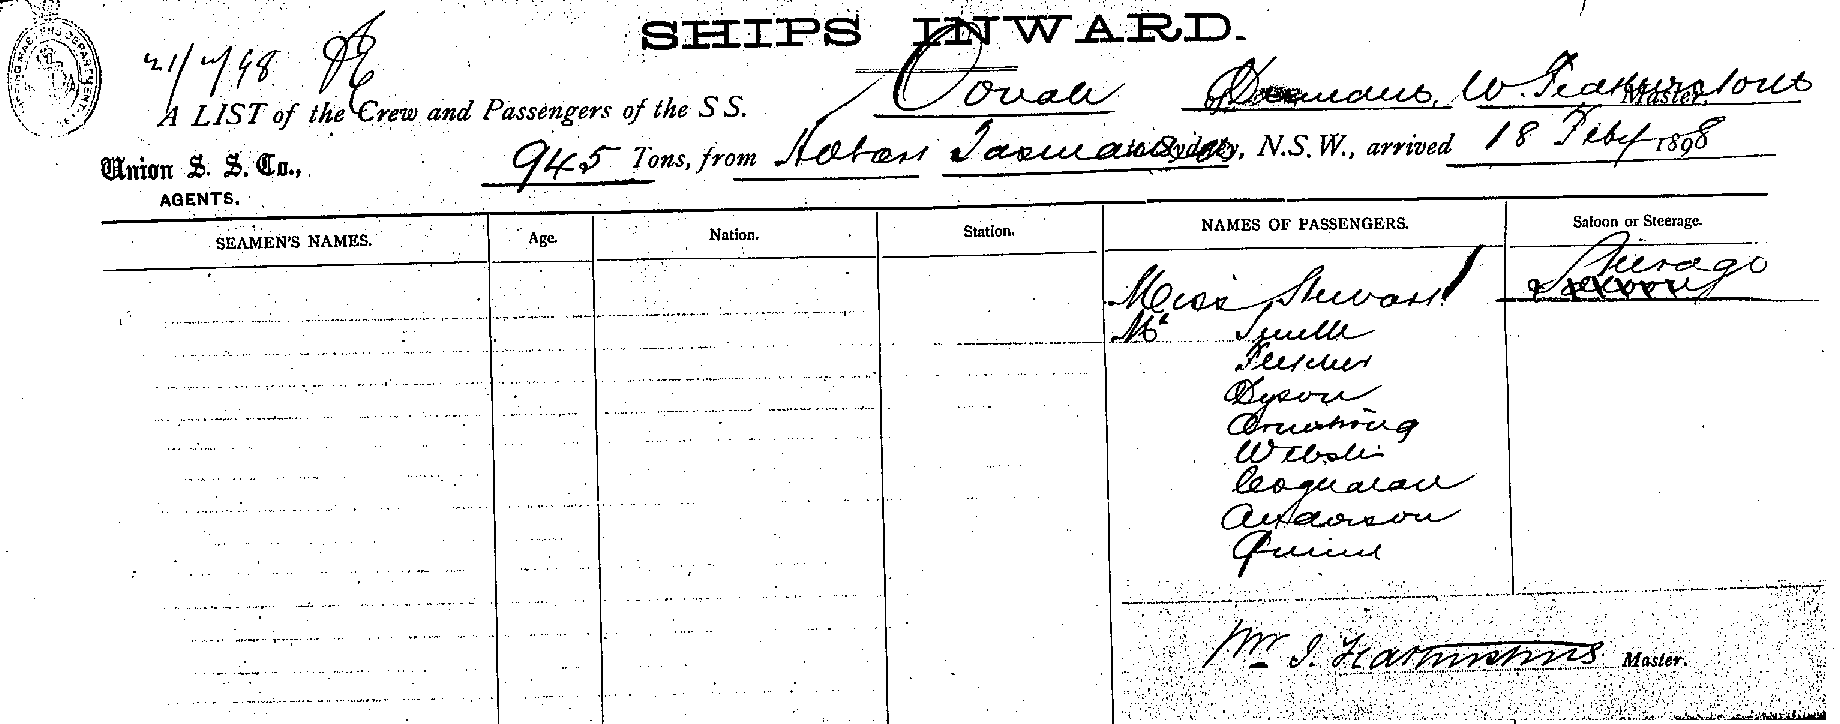 SHIPS INWARD.
21/2/98
A LIST of the Crew and Passengers of the S S. Oonah W. Featherstone Master.
Union S. S. Co., 945 Tons, from Hobart Tasmania to Sydney, N.S.W., arrived 18 Feby 1898
AGENTS.
SEAMEN'S NAMES. Age. Nation. Station. NAMES OF PASSENGERS. Saloon or Steerage.
Miss Stewart Steerage
Mr Smith
Fletcher
Dyson
Armstrong
Webster
Anderson
Quinn
Wm J. Featherstone Master.